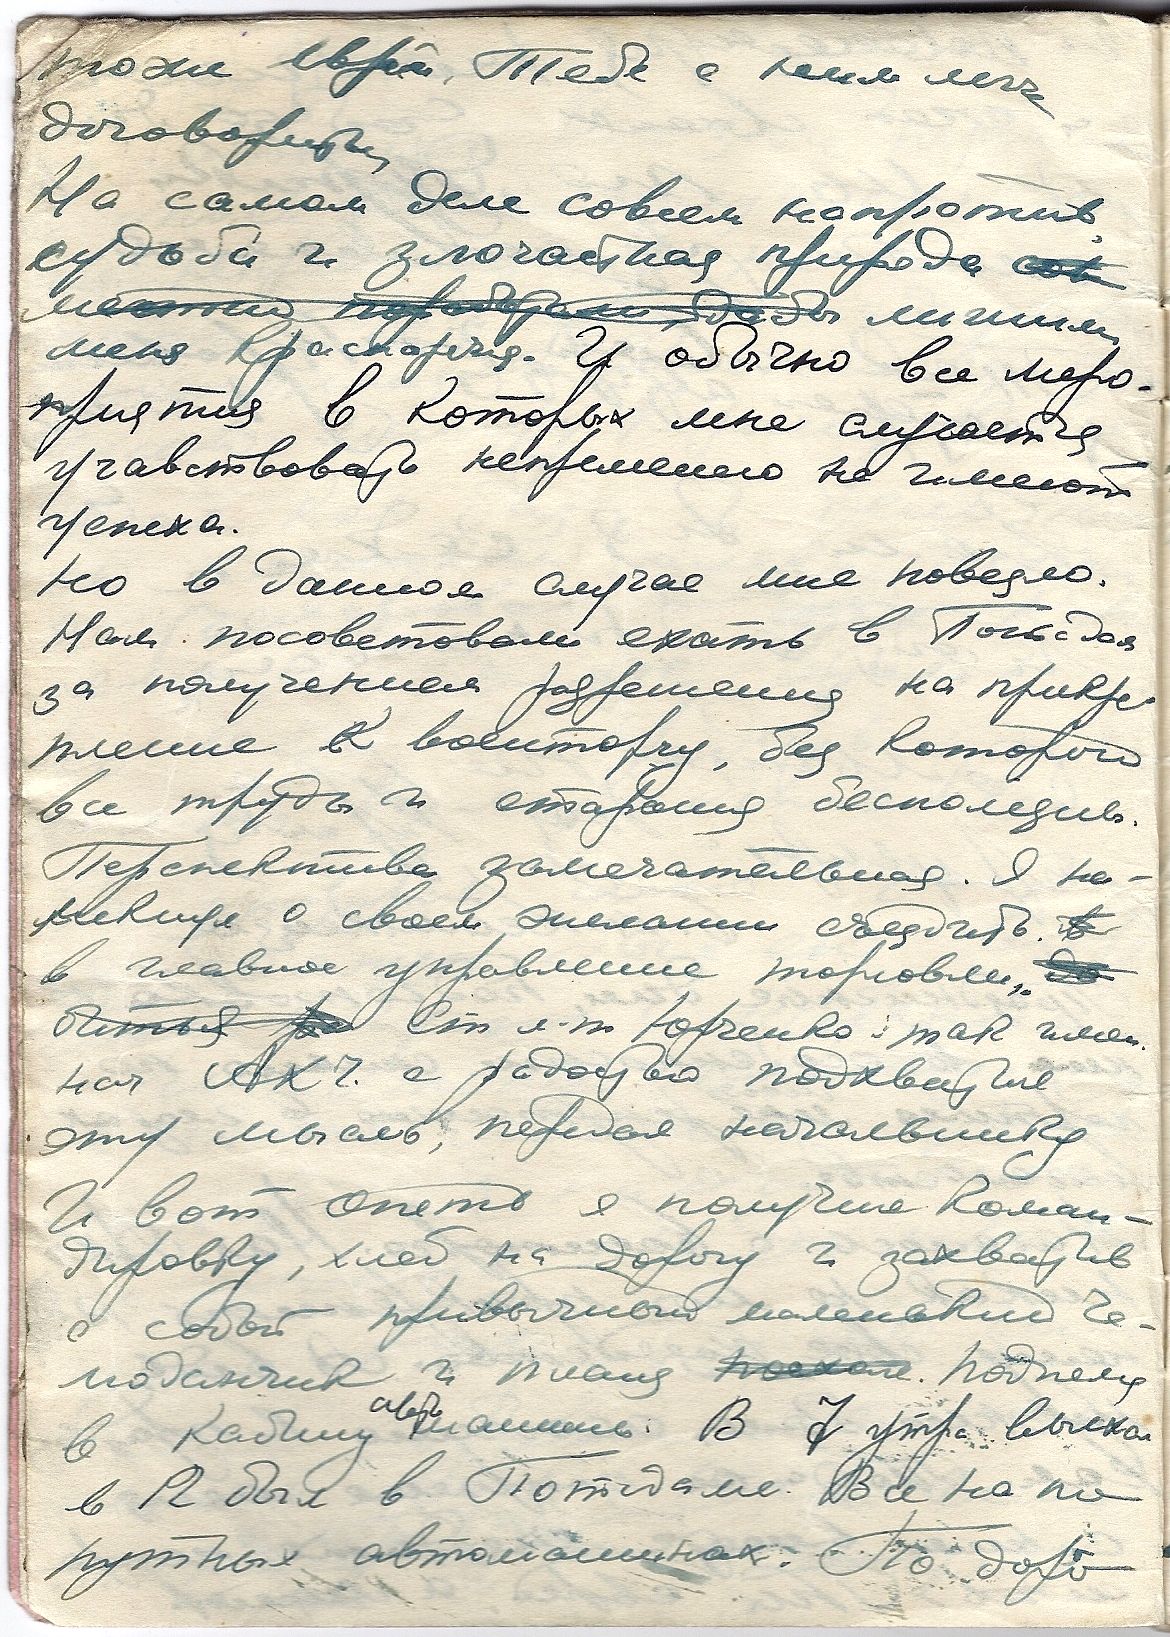 тоже еврей. Тебе с ним легче
договориться,
На самом деле совсем напротив,
судьба и злочастная природа сов
местно лишили
меня красноречия. И обычно все меро-
приятия в которых мне случается
учавствовать непременно не имеют
успеха.
Но в данном случае мне повезло.
Нам посоветовали ехать в Потсдам
за получением разрешения на прикре-
пление к военторгу, без которого
все труды и старания бесполезны.
Перспектива замечательная. Я на-
мекнул о своем желании съездить. в
в главное управление торговли,, до
биться ра Ст л-т Юрченко: так имен.
нач АХЧ. с радостью подхватил
эту мысль, передал начальнику
И вот опять я получил коман-
дировку, хлеб на дорогу и захватив
с собой привычный маленький че-
моданчик и плащ поехал. поднялся
в кабину авто машины. В 7 утра выехал
в 12 был в Потсдаме. Все на по
путных автомашинах. По доро